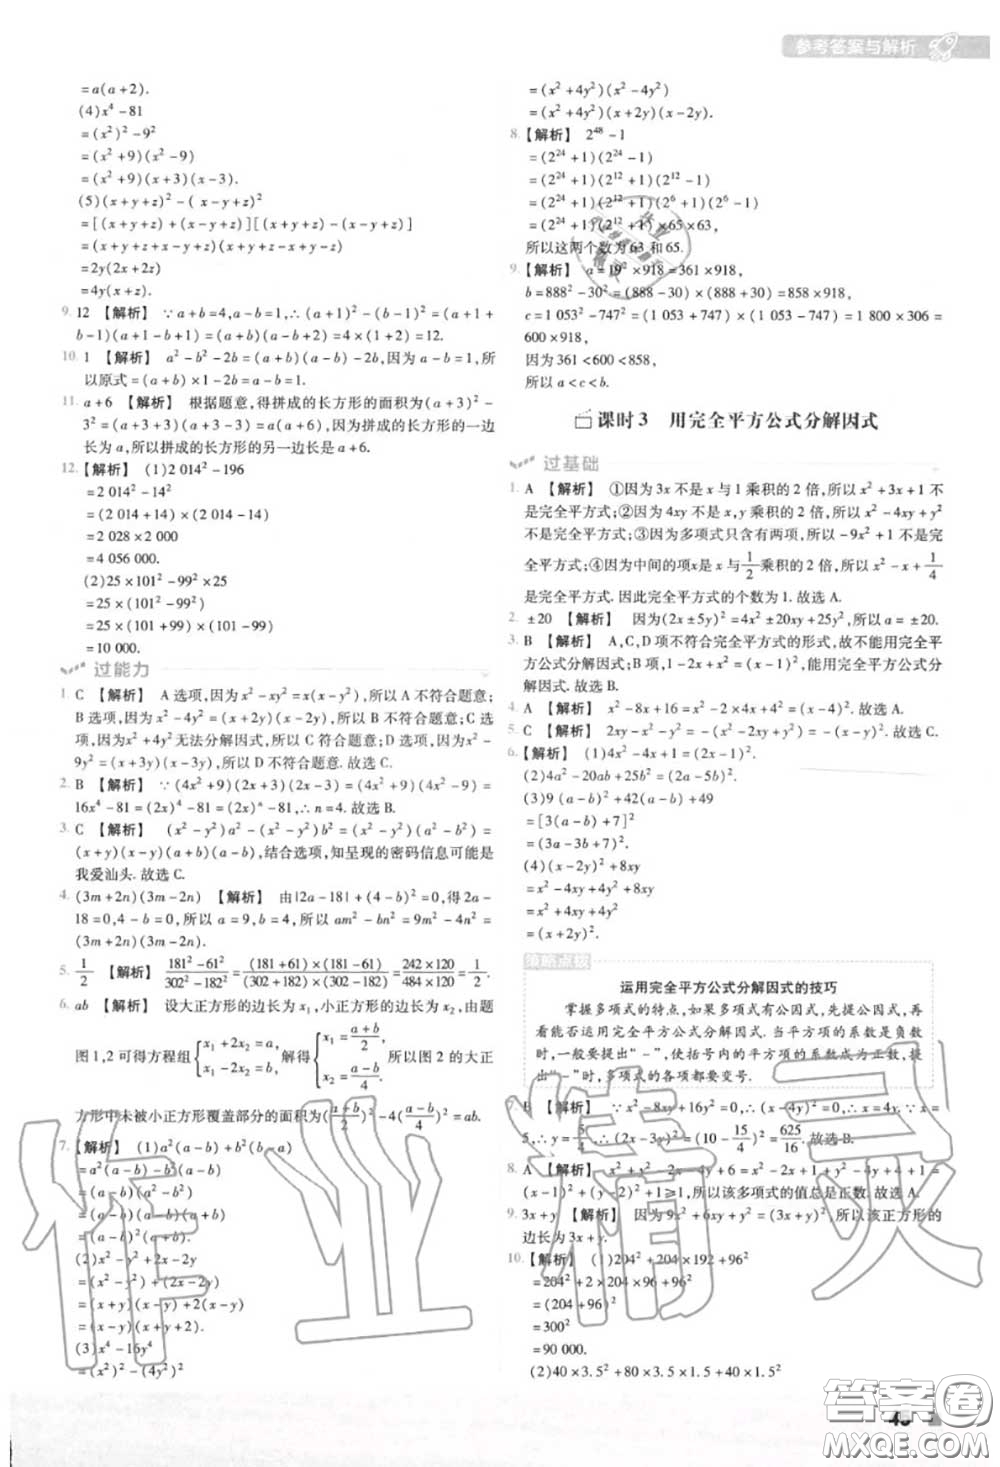 参考答案与解析
=a(a+2).
(4)x⁴-81
=(x²)²-9²
=(x²+9)(x²-9)
=(x²+9)(x+3)(x-3).
(5)(x+y+z)²-(x-y+z)²
=[(x+y+z)+(x-y+z)][(x+y+z)-(x-y+z)]
=(x+y+z+x-y+z)(x+y+z-x+y-z)
=2y(2x+2z)
=4y(x+z).
9. 12 【解析】 ∵a+b=4,a-b=1,∴(a+1)²-(b-1)²=(a+1+
b-1)(a+1-b+1)=(a+b)(a-b+2)=4×(1+2)=12.
10. 1 【解析】 a²-b²-2b=(a+b)(a-b)-2b,因为a-b=1,所
以原式=(a+b)×1-2b=a-b=1.
11. a+6 【解析】 根据题意,得拼成的长方形的面积为(a+3)²-
3²=(a+3+3)(a+3-3)=a(a+6),因为拼成的长方形的一边
长为a,所以拼成的长方形的另一边长是a+6.
12.【解析】 (1)2 014²-196
=2 014²-14²
=(2 014+14)×(2 014-14)
=2 028×2 000
=4 056 000.
(2)25×101²-99²×25
=25×(101²-99²)
=25×(101+99)×(101-99)
=10 000.
过能力
1. C 【解析】 A选项,因为x²-xy²=x(x-y²),所以A不符合题意;
B选项,因为x²-4y²=(x+2y)(x-2y),所以B不符合题意;C选
项,因为x²+4y²无法分解因式,所以C符合题意;D选项,因为x²-
9y²=(x+3y)(x-3y),所以D不符合题意.故选C.
2. B 【解析】 ∵(4x²+9)(2x+3)(2x-3)=(4x²+9)(4x²-9)=
16x⁴-81=(2x)⁴-81=(2x)ⁿ-81,∴n=4.故选B.
3. C 【解析】 (x²-y²)a²-(x²-y²)b²=(x²-y²)(a²-b²)=
(x+y)(x-y)(a+b)(a-b),结合选项,知呈现的密码信息可能是
我爱汕头.故选C.
4. (3m+2n)(3m-2n) 【解析】 由|2a-18|+(4-b)²=0,得2a-
18=0,4-b=0,所以a=9,b=4,所以am²-bn²=9m²-4n²=
(3m+2n)(3m-2n).
5. 1/2 【解析】 (181²-61²)/(302²-182²)=((181+61)×(181-61))/((302+182)×(302-182))=(242×120)/(484×120)=1/2.
6. ab 【解析】 设大正方形的边长为x₁,小正方形的边长为x₂,由题
图1,2可得方程组{x₁+2x₂=a, x₁-2x₂=b, 解得{x₁=(a+b)/2, x₂=(a-b)/4. 所以图2的大正
方形中未被小正方形覆盖部分的面积为((a+b)/2)²-4((a-b)/4)²=ab.
7.【解析】 (1)a²(a-b)+b²(b-a)
=a²(a-b)-b²(a-b)
=(a-b)(a²-b²)
=(a-b)(a-b)(a+b)
=(a-b)²(a+b).
(2)x²-y²+2x-2y
=(x²-y²)+(2x-2y)
=(x+y)(x-y)+2(x-y)
=(x-y)(x+y+2).
(3)x⁴-16y⁴
=(x²)²-(4y²)²
=(x²+4y²)(x²-4y²)
=(x²+4y²)(x+2y)(x-2y).
8.【解析】 2⁴⁸-1
=(2²⁴+1)(2²⁴-1)
=(2²⁴+1)(2¹²+1)(2¹²-1)
=(2²⁴+1)(2¹²+1)(2⁶+1)(2⁶-1)
=(2²⁴+1)(2¹²+1)×65×63,
所以这两个数为63和65.
9.【解析】 a=19²×918=361×918,
b=888²-30²=(888-30)×(888+30)=858×918,
c=1 053²-747²=(1 053+747)×(1 053-747)=1 800×306=
600×918,
因为361<600<858,
所以a<c<b.
课时3 用完全平方公式分解因式
过基础
1. A 【解析】 ①因为3x不是x与1乘积的2倍,所以x²+3x+1不
是完全平方式;②因为4xy不是x,y乘积的2倍,所以x²-4xy+y²
不是完全平方式;③因为多项式只含有两项,所以-9x²+1不是完
全平方式;④因为中间的项x是x与1/2乘积的2倍,所以x²-x+1/4
是完全平方式.因此完全平方式的个数为1.故选A.
2. ±20 【解析】 因为(2x±5y)²=4x²±20xy+25y²,所以a=±20.
3. B 【解析】 A,C,D项不符合完全平方式的形式,故不能用完全平
方公式分解因式;B项,1-2x+x²=(x-1)²,能用完全平方公式分
解因式.故选B.
4. A 【解析】 x²-8x+16=x²-2×4x+4²=(x-4)².故选A.
5. C 【解析】 2xy-x²-y²=-(x²-2xy+y²)=-(x-y)².故选C.
6.【解析】 (1)4x²-4x+1=(2x-1)².
(2)4a²-20ab+25b²=(2a-5b)².
(3)9(a-b)²+42(a-b)+49
=[3(a-b)+7]²
=(3a-3b+7)².
(4)(x-2y)²+8xy
=x²-4xy+4y²+8xy
=x²+4xy+4y²
=(x+2y)².
策略点拨
运用完全平方公式分解因式的技巧
掌握多项式的特点,如果多项式有公因式,先提公因式,再
看能否运用完全平方公式分解因式.当平方项的系数是负数
时,一般要提出“-”,使括号内的平方项的系数成为正数,提
出“-”时,多项式的各项都要变号.
7. B 【解析】 ∵x²-8xy+16y²=0,∴(x-4y)²=0,∴x=4y.∵x=
5,∴y=5/4,∴(2x-3y)²=(10-15/4)²=625/16.故选B.
8. A 【解析】 x²+y²-2x-4y+6=x²-2x+1+y²-4y+4+1=
(x-1)²+(y-2)²+1≥1,所以该多项式的值总是正数.故选A.
9. 3x+y 【解析】 因为9x²+6xy+y²=(3x+y)²,所以该正方形的
边长为3x+y.
10.【解析】 (1)204²+204×192+96²
=204²+2×204×96+96²
=(204+96)²
=300²
=90 000.
(2)40×3.5²+80×3.5×1.5+40×1.5²
作业精灵
答案圈
MXQE.COM